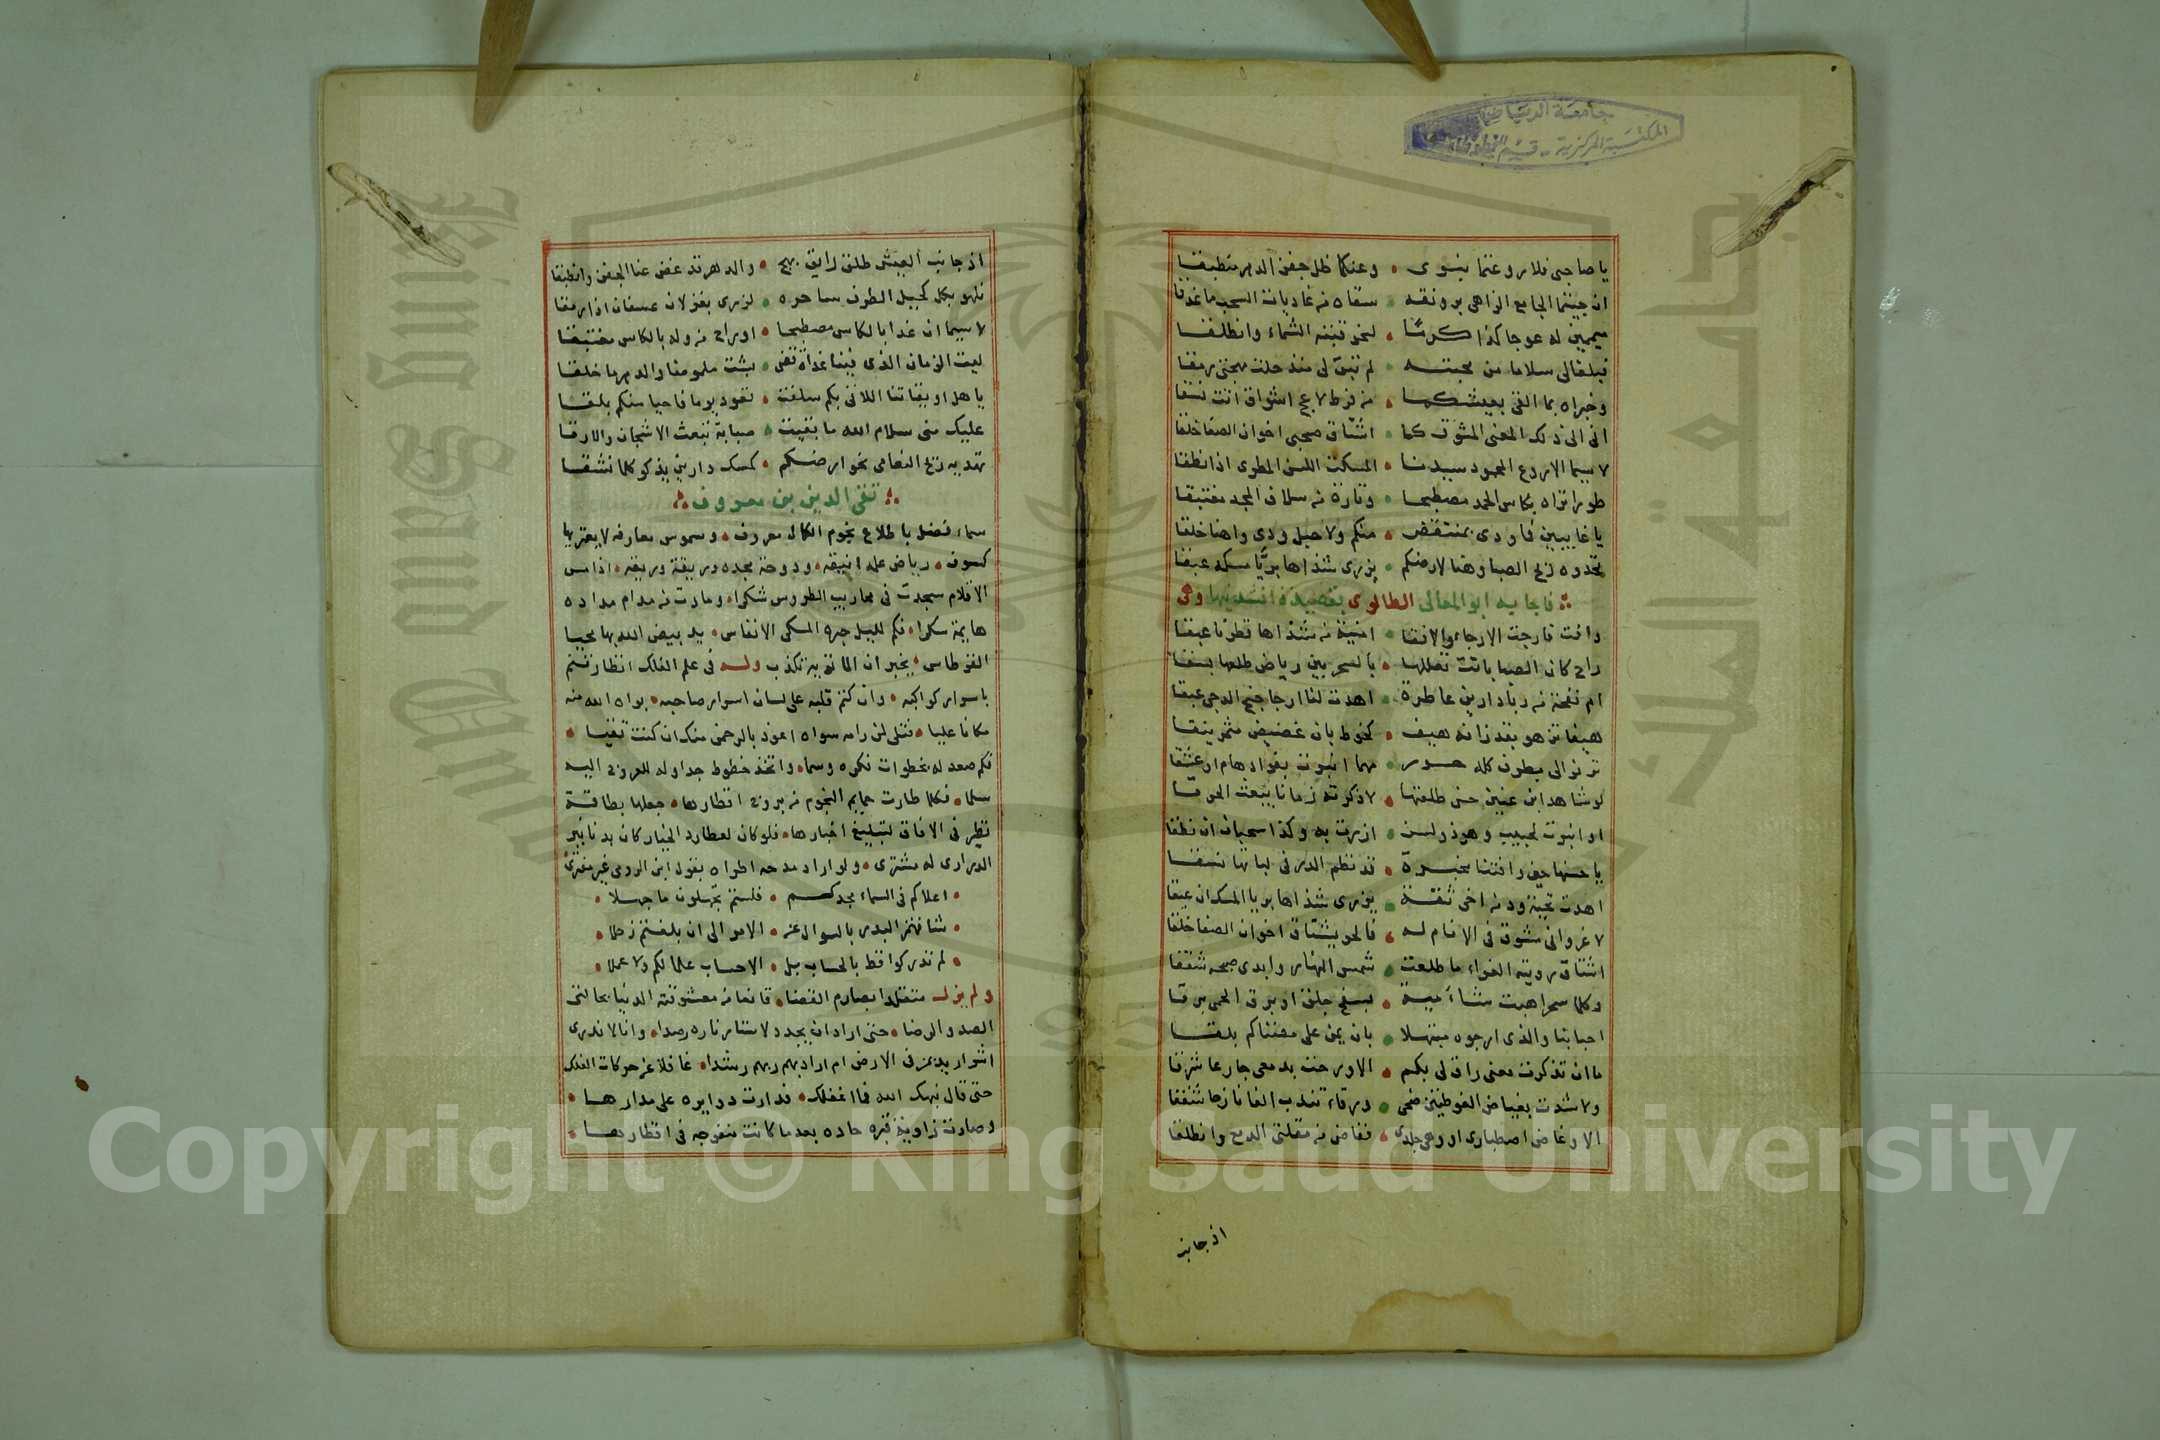 جامعة الرياض
المكتبة المركزية - قسم المخطوطات
يا صاحبي فلا روعتما بنوى • وعنكما ظل جفن الدهر منطبقا
ان جيتما الجامع الزاهي برونقه • سقاه من غاديات السحب ما غدقا
ميممين له عوجا كذا كرما • لنحو قبته الشماء وانطلقا
فبلغا لي سلاما من محبته • لم تبق لي منذ حلت مهجتي رمقا
وخبراه بما القى بعيشكما • من فرط لاعج اشواق اتت نسقا
اني الى ذلك المغنى المشوق كما • اشتاق صحبي اخوان الصفا خلقا
لا سيما الاروع المحمود سيدنا • المسكت اللسن المطرى اذا نطقا
طورا تراه بكاس الحمد مصطبحا • وتارة من سلاف المجد مغتبقا
يا غايبين فا ودي بمنتقض • منكم ولا حبل ودي واهنا خلقا
تحدوه ريح الصبا وهنا لارضكم • يزري شذاها بريا مسكه عبقا
فاجابه ابو المعالي الطالوي بقصيدة انشدنيها وهي
وافت فارجت الارجاء والافقا • امنية من شذاها قطرنا عبقا
راح كان الصبا باتت تعللها • بالسحر بين رياض طلعها بسقا
ام نفحة من ربا دارين عاطرة • اهدت لنا ارجا جنح الدجى عبقا
هيفا تزهو بقد زانه هيف • كخوط بان غضيض مثمر ينقا
ترنو الى بطرف كله حور • مهما انبرت بفؤاد هام او عشقا
لو شاهد ابن عنين حسن طلعتها • لا ذكرته زمانا يبعث الحرقا
او انبرت لحبيب وهو ذو لسن • ازرت به وكذا سحبان ان نطقا
يا حسنها حين وافتنا مخبرة • قد نظم الدر في لباتها نسقا
اهدت تحية ود من اخي ثقة • يزري شذاها بريا المسك ان عبقا
لا غرو اني مشوق في الانام له • فالحر يشتاق اخوان الصفا خلقا
اشتاق رويته الغراء ما طلعت • شمس النهار وابدى صبحه شفقا
وكلما سحرا هبت شآمية • بسفح جلق او برق الحمى برقا
احبابنا والذي ارجوه مبتهلا • بان يمن على مضناكم بلقا
ما ان تذكرت مغنى راق لي بكم • الا ورحت بدمعي جارعا شرقا
ولا شدت بغياض الغوطتين ضحى • ورقاء تندب الفا نازحا شفقا
الا وغاض اصطباري او وهى جلدي • ففاض من مقلتي الدمع وانطلقا
اذ جانب
اذ جانب العيش طلق رايق بهج • والدهر قد غض عنا الجفن وانطبقا
نلهو بكل كحيل الطرف ساحره • يزري بغزلان عسفان اذا رمقا
لا سيما ان غدا بالكاس مصطبحا • او راح من وله بالكاس مغتبقا
ليت الزمان الذي فينا غداة قضى • بشت ملمومنا والدهر ما خلقا
يا هل اويقاتنا اللاتي بكم سلفت • تعود يوما فاحيا منكم بلقا
عليك مني سلام الله ما بقيت • صبابة تبعث الاشجان والارقا
تهديه ريح النعامى نحو ارضكم • كمسك دارين يذكو كلما نشقا
تقي الدين بن معروف
سماء فضل باطلاع نجوم الكمال معروف • وشموس معارفه لا يعتريها
كسوف • رياض علمه انيقه • ودوحة مجده وريقة وريفه • اذا مس
الاقلام سجدت في محاريب الطروس شكرا • ومادت من مدام مداده
هايمة سكرا • فكم لليل حبره المسكي الانفاس • يد بيض الله بها محيا
القرطاس • يخبر ان المانوية تكذب وله في علم الفلك انظار تنم
باسرار كواكبه • وان كتم قلبه على لسان اسرار صاحبه • بواه الله منه
مكانا عليا • فتلى لمن رامه سواه اعوذ بالرحمن منك ان كنت تقيا •
فكم صعد له بخطوات فكره وسما • واتخذ خطوط جداوله للعروج اليه
سلما • فكلما طارت حمايم النجوم من بروج اقطارها • جعلها بطاقة
تطير في الافاق لتبليغ اخبارها • فلو كان لعطارد الخيار كان بدنانير
الدراري له مشتري • ولو اراد مدحه اطراه بقول ابن الرومي غير مفتري
• اعلاكم في السماء مجدكم • فلستم تجهلون ما جهلا •
• شافهتم البدر بالسوال عن • الامر الى ان بلغتم زحلا •
• لم تدركوا قط بالحساب بل • الاحساب علما لكم ولا عملا •
ولم يزل متقلدا بصارم القضا • قانعا من معشوقته الدنيا بحالتي
الصد والرضا • حتى اراد ان يجدد لاستار ناره رصدا • وانا لا ندري
اشر اريد بمن في الارض ام اراد بهم ربهم رشدا • غافلا عن حركات الفلك
حتى قال نبهك الله فما اغفلك • فدارت دوايره على مدارها •
وصارت زاوية قبره حاده بعد ما كانت منفرجه في اقطارها •
Copyright © King Saud University